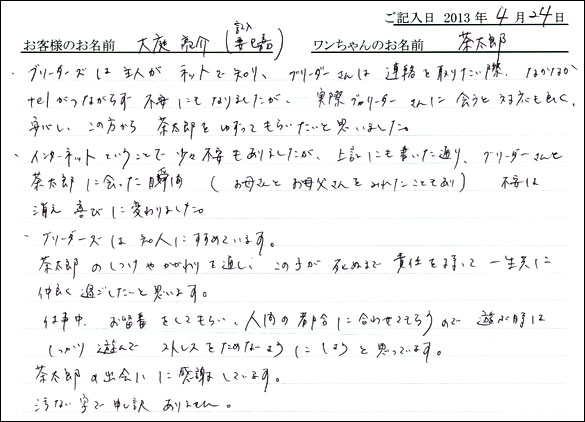 ご記入日 2013年4月24日
お客様のお名前 大庭 ワンちゃんのお名前 茶太郎
・ブリーダーズは主人がネットで知り、ブリーダーさんは連絡を取りたい際、なかなか
telがつながらず不安にもなりましたが、実際ブリーダーさんに会うと対応も良く、
安心し、この方から茶太郎をゆずってもらいたいと思いました。
・インターネットということで少々不安もありましたが、上記にも書いた通り、ブリーダーさんと
茶太郎に会った瞬間(お母さんとお母父さんをみれたこともあり)不安は
消え喜びに変わりました。
・ブリーダーズは知人にすすめています。
茶太郎のしつけやかかわりを通し、この子が死ぬまで責任を持って一生共に
仲良く過ごしたいと思います。
仕事中、お留番をしてもらい、人間の都合に合わせてもらうので遊ぶ時は
しっかり遊んでストレスをためないようにしようと思っています。
茶太郎の出会いに感謝しています。
汚ない字で申訳ありません。